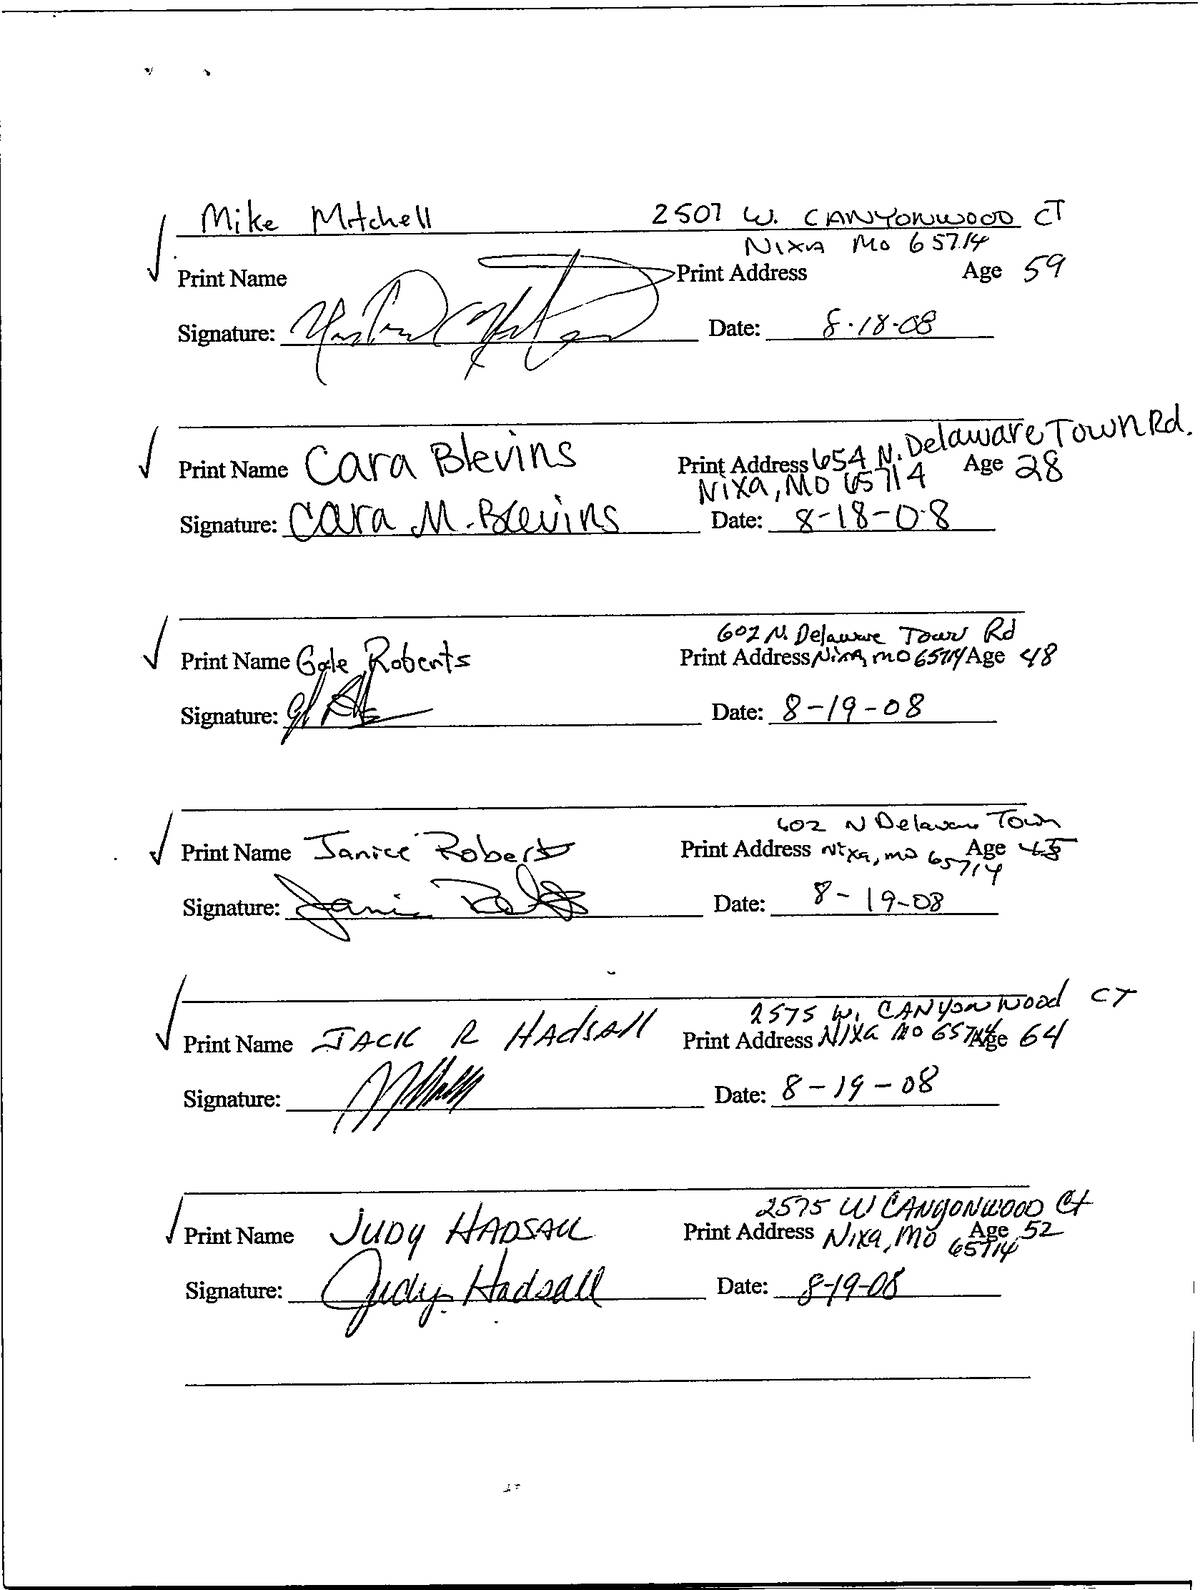 Mike Mitchell 2507 W. CANYONWOOD CT
NIXA MO 65714
Print Name Print Address Age 59
Signature: Date: 8-18-08
Print Name Cara Blevins Print Address 654 N. Delaware Town Rd. Age 28
Nixa, MO 65714
Signature: Cara M. Blevins Date: 8-18-08
602 N. Delaware Town Rd
Print Name Gale Roberts Print Address Nixa, mo 65714 Age 48
Signature: Date: 8-19-08
602 N Delaware Town
Print Name Janice Roberts Print Address Nixa, mo 65714 Age
Signature: Janice Roberts Date: 8-19-08
2575 W. CANYONWOOD CT
Print Name JACK R HADSALL Print Address NIXA MO 65714 Age 64
Signature: Date: 8-19-08
2575 W CANYONWOOD Ct
Print Name JUDY HADSALL Print Address Nixa, MO 65714 Age 52
Signature: Judy Hadsall Date: 8-19-08